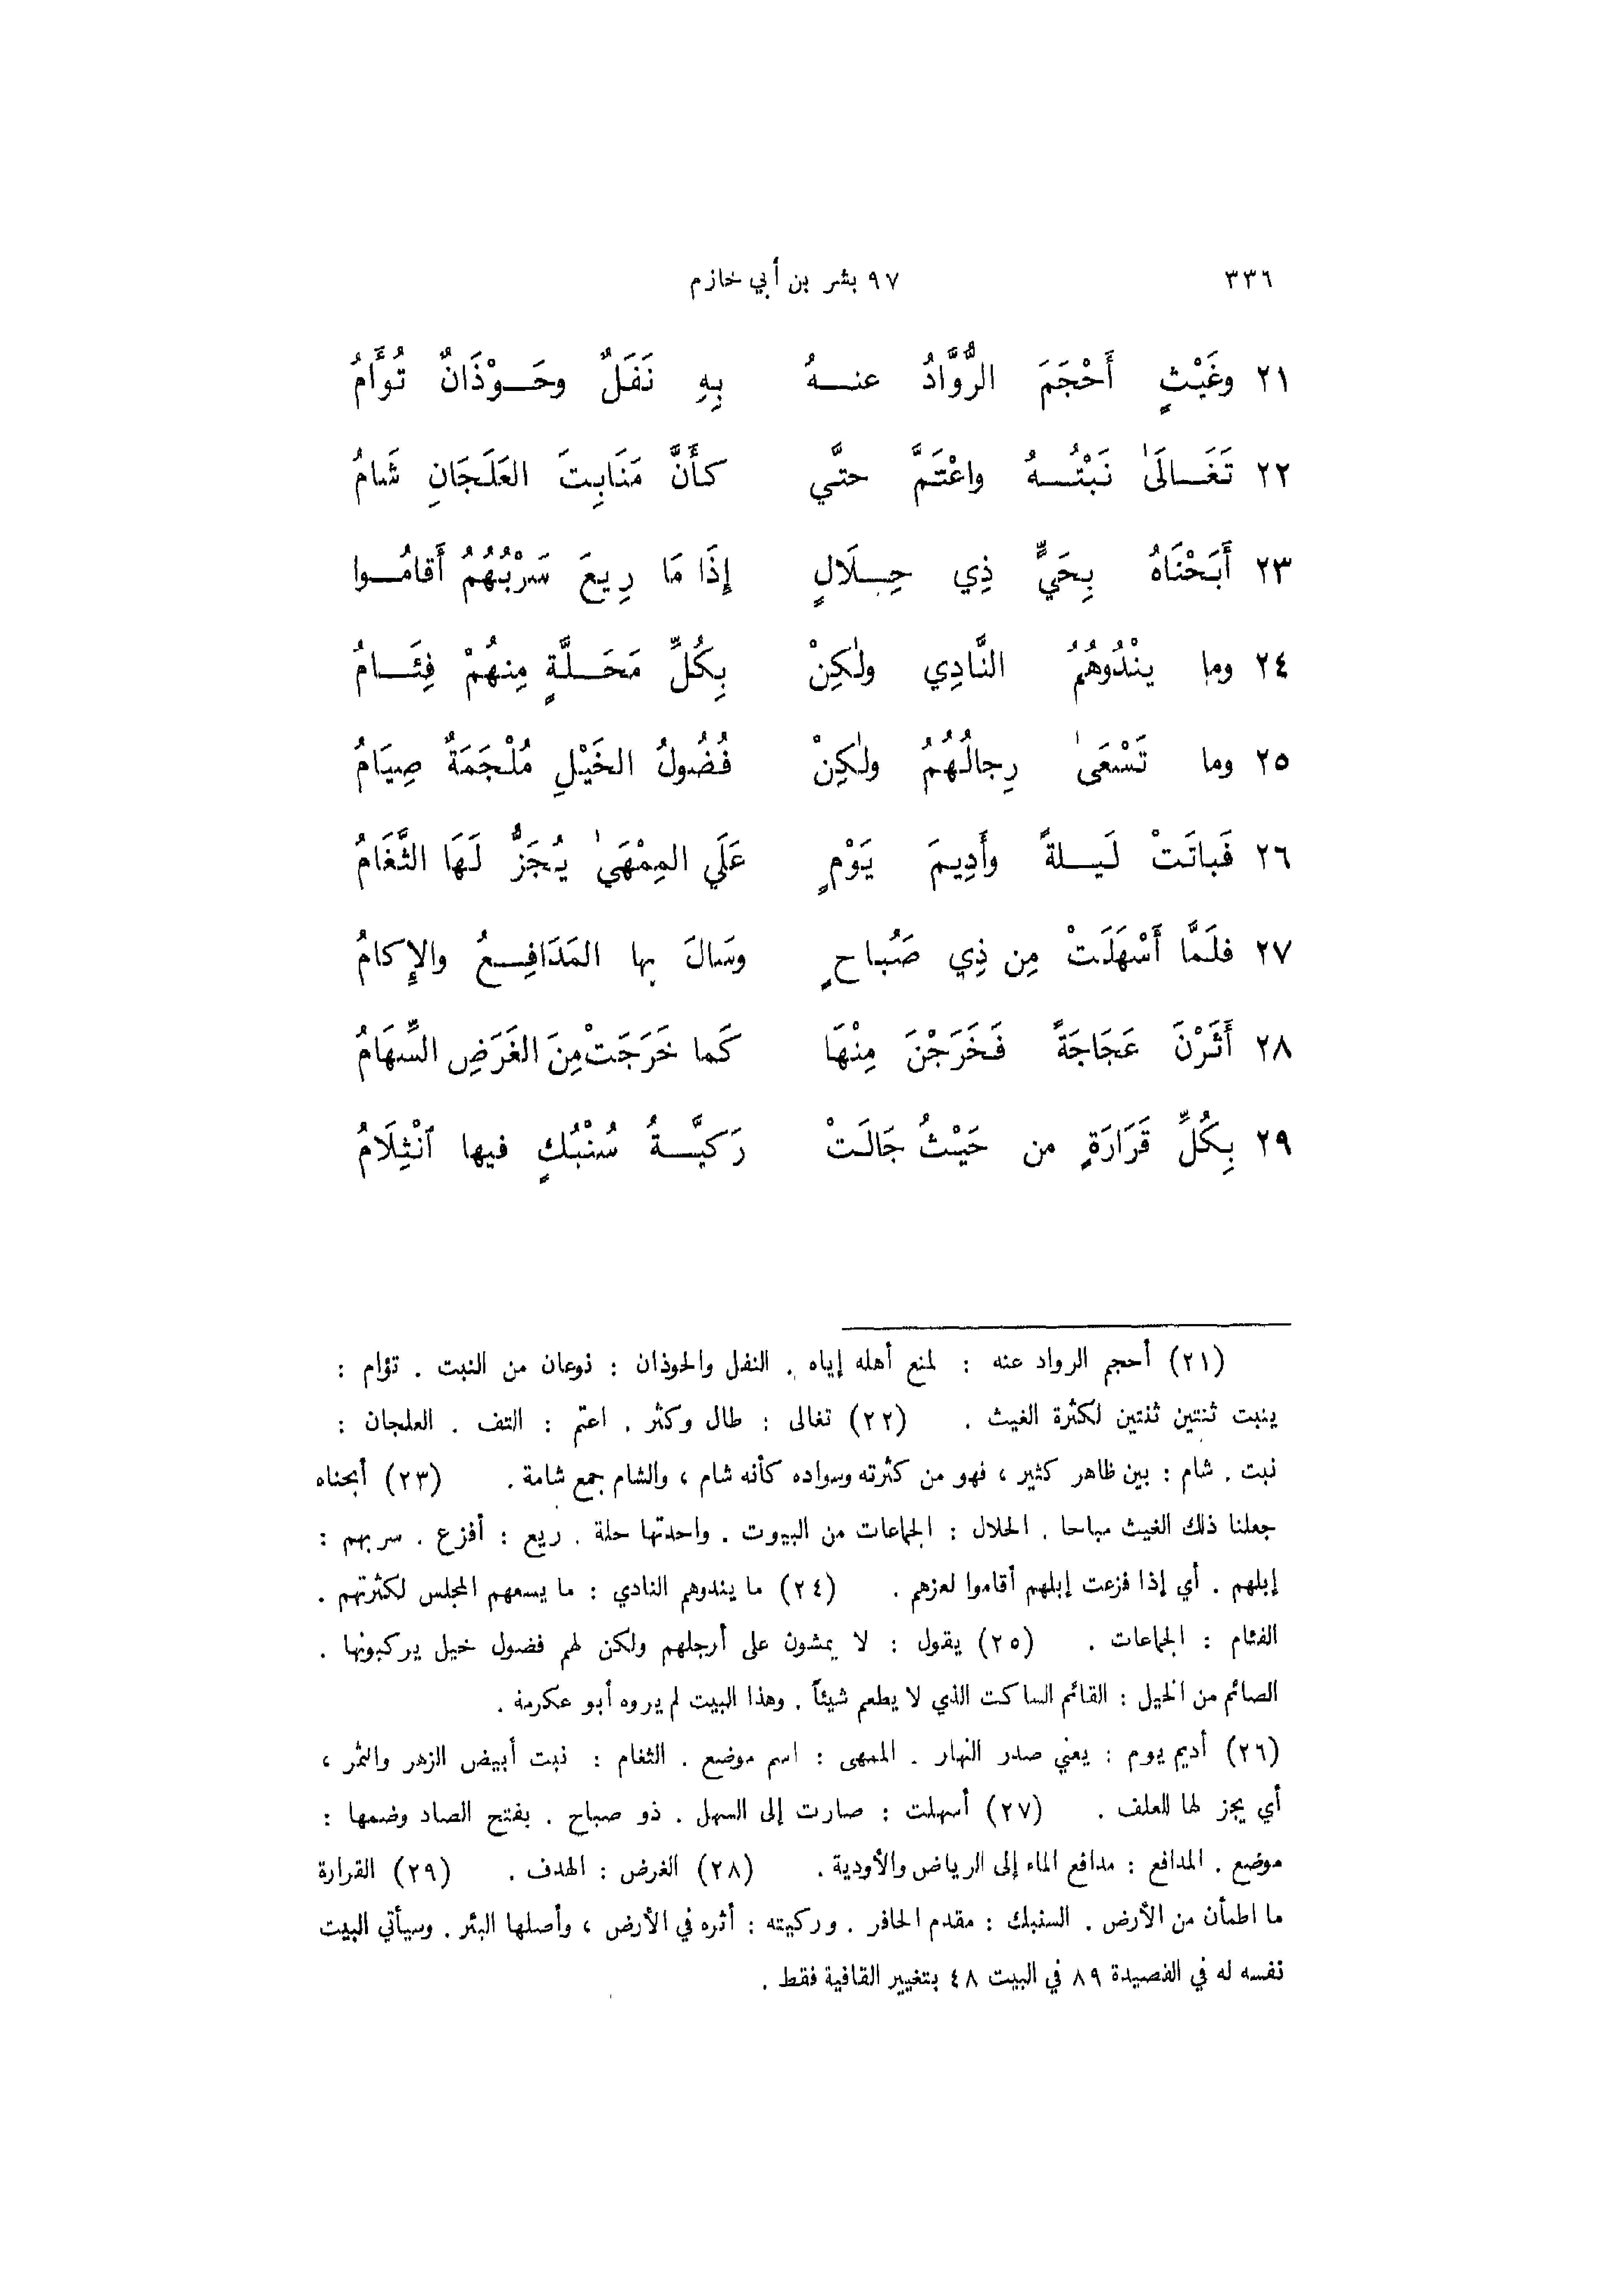 ٣٣٦ ٩٧ بشر بن أبي خازم
٢١ وغَيْثٍ أَحْجَمَ الرُّوَّادُ عنـــهُ بِهِ نَفَلٌ وحَـــوْذَانٌ تُوأَمُ
٢٢ تَغَـــالَىٰ نَبْتُـــهُ واعْتَمَّ حتَّي كأَنَّ مَنَابِتَ العَلَجَانِ شَامُ
٢٣ أَبَحْنَاهُ بِحَيٍّ ذِي حِـــلَالٍ إِذَا مَا رِيعَ سَرْبُهُمُ أَقامُـــوا
٢٤ وما ينْدُوهُمُ النَّادِي ولٰكِنْ بِكُلِّ مَحَـــلَّةٍ مِنهُمْ فِئَـــامُ
٢٥ وما تَسْعَىٰ رِجالُهُمُ ولٰكِنْ فُضُولُ الخَيْلِ مُلْجَمَةٌ صِيَامُ
٢٦ فَباتَتْ لَيـــلةً وأَدِيمَ يَوْمٍ عَلَي المِمْهَىٰ يُجَزُّ لَهَا الثَّغَامُ
٢٧ فلَمَّا أَسْهَلَتْ مِن ذِي صَُباحٍ وسَالَ بها المَدَافِـــعُ والإِكامُ
٢٨ أَثَرْنَ عَجَاجَةً فَخَرَجْنَ مِنْهَا كَما خَرَجَتْ مِنَ الغَرَضِ السِّهَامُ
٢٩ بِكُلِّ قَرَارَةٍ من حَيْثُ جَالَتْ رَكيَّـــةُ سُنْبُكٍ فيها ٱنْثِلَامُ
(٢١) أحجم الرواد عنه : لمنع أهله إياه . النفل والحوذان : نوعان من النبت . تؤام :
ينبت ثنتين ثنتين لكثرة الغيث . (٢٢) تغالى : طال وكثر . اعتم : التف . العلجان :
نبت . شام : بين ظاهر كثير ، فهو من كثرته وسواده كأنه شام ، والشام جمع شامة . (٢٣) أبحناه
جعلنا ذلك الغيث مباحا . الحلال : الجماعات من البيوت . واحدتها حلة . ريع : أفزع . سربهم :
إبلهم . أي إذا فزعت إبلهم أقاموا لعزهم . (٢٤) ما يندوهم النادي : ما يسعهم المجلس لكثرتهم .
الفئام : الجماعات . (٢٥) يقول : لا يمشون على أرجلهم ولكن لهم فضول خيل يركبونها .
الصائم من الخيل : القائم الساكت الذي لا يطعم شيئاً . وهذا البيت لم يروه أبو عكرمة .
(٢٦) أديم يوم : يعني صدر النهار . الممهى : اسم موضع . الثغام : نبت أبيض الزهر والثمر ،
أي يجز لها للعلف . (٢٧) أسهلت : صارت إلى السهل . ذو صباح . بفتح الصاد وضمها :
موضع . المدافع : مدافع الماء إلى الرياض والأودية . (٢٨) الغرض : الهدف . (٢٩) القرارة
ما اطمأن من الأرض . السنبك : مقدم الحافر . وركيته : أثره في الأرض ، وأصلها البئر . وسيأتي البيت
نفسه له في القصيدة ٨٩ في البيت ٤٨ بتغيير القافية فقط .